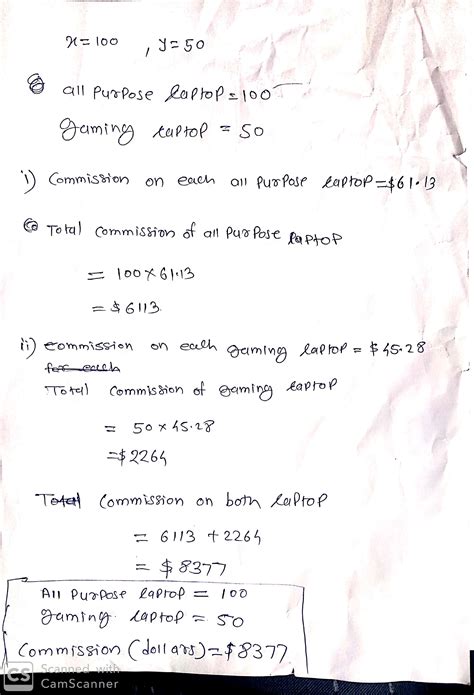 x=100 , y=50
all purpose laptop = 100
gaming laptop = 50
i) Commission on each all purpose laptop = $61.13
Total commission of all purpose laptop
= 100 x 61.13
= $6113
ii) commission on each gaming laptop = $45.28
for each
Total commission of gaming laptop
= 50 x 45.28
= $2264
Total Commission on both laptop
= 6113 + 2264
= $8377
All purpose laptop = 100
gaming laptop = 50
Commission (dollars) = $8377
CS Scanned with
CamScanner